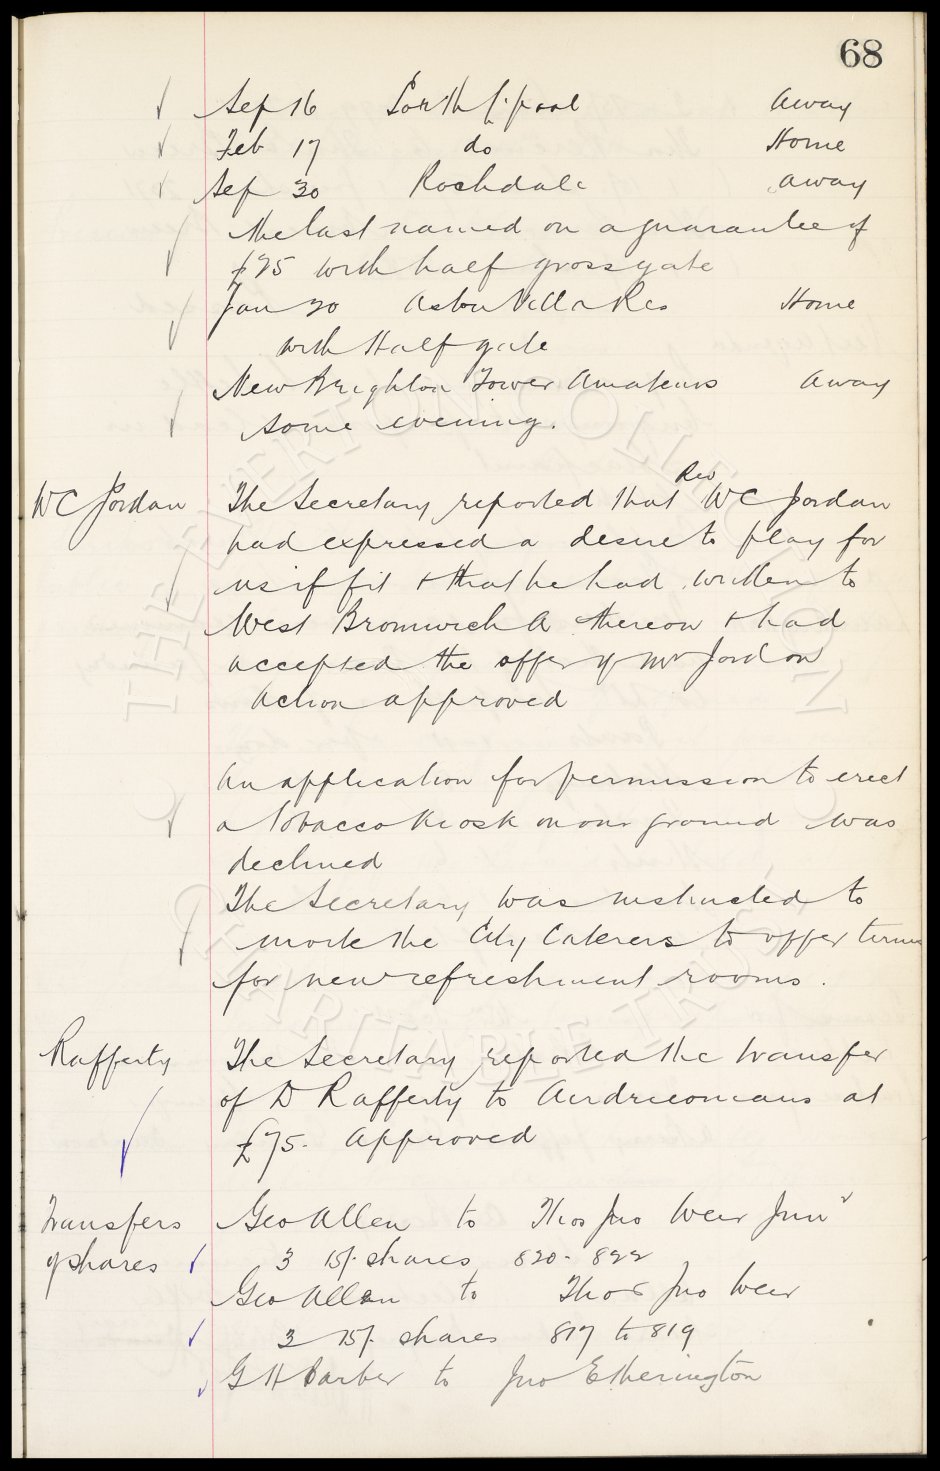 68
Sep 16 South L'pool Away
Feb 17 do Home
Sep 30 Rochdale away
the last named on a guarantee of
£25 with half gross gate
Jan 20 Aston Villa Res Home
with Half gate
New Brighton Tower Amateurs Away
some evening.
WC Jordan The Secretary reported that Rev WC Jordan
had expressed a desire to play for
us if fit & that he had written to
West Bromwich A thereon & had
accepted the offer of Mr Jordan
Action approved
An application for permission to erect
a Tobacco Kiosk on our ground was
declined
The Secretary was instructed to
the City Caterers to offer terms
for new refreshment rooms.
Rafferty The Secretary reported the transfer
of D Rafferty to Airdrieonians at
£75. Approved
Transfers Geo Allen to Thos Jno Weir Junr
of shares 3 15/- shares 820-822
Geo Allen to Thos Jno Weir
3 15/- shares 817 to 819
G H Barber to Jno Etherington
THE EVERTON COLLECTION
CHARITABLE TRUST